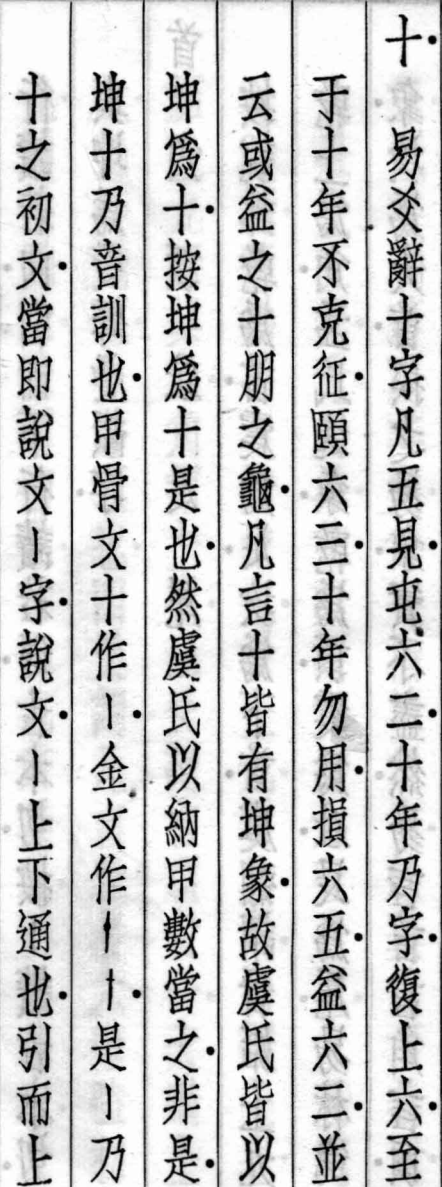 十 易爻辭十字凡五見屯六二十年乃字復上六至
于十年不克征頤六三十年勿用損六五益六二並
云或益之十朋之龜凡言十皆有坤象故虞氏皆以
坤爲十按坤爲十是也然虞氏以納甲數當之非是
坤十乃音訓也甲骨文十作丨金文作𠂇十是丨乃
十之初文當即說文丨字說文丨上下通也引而上